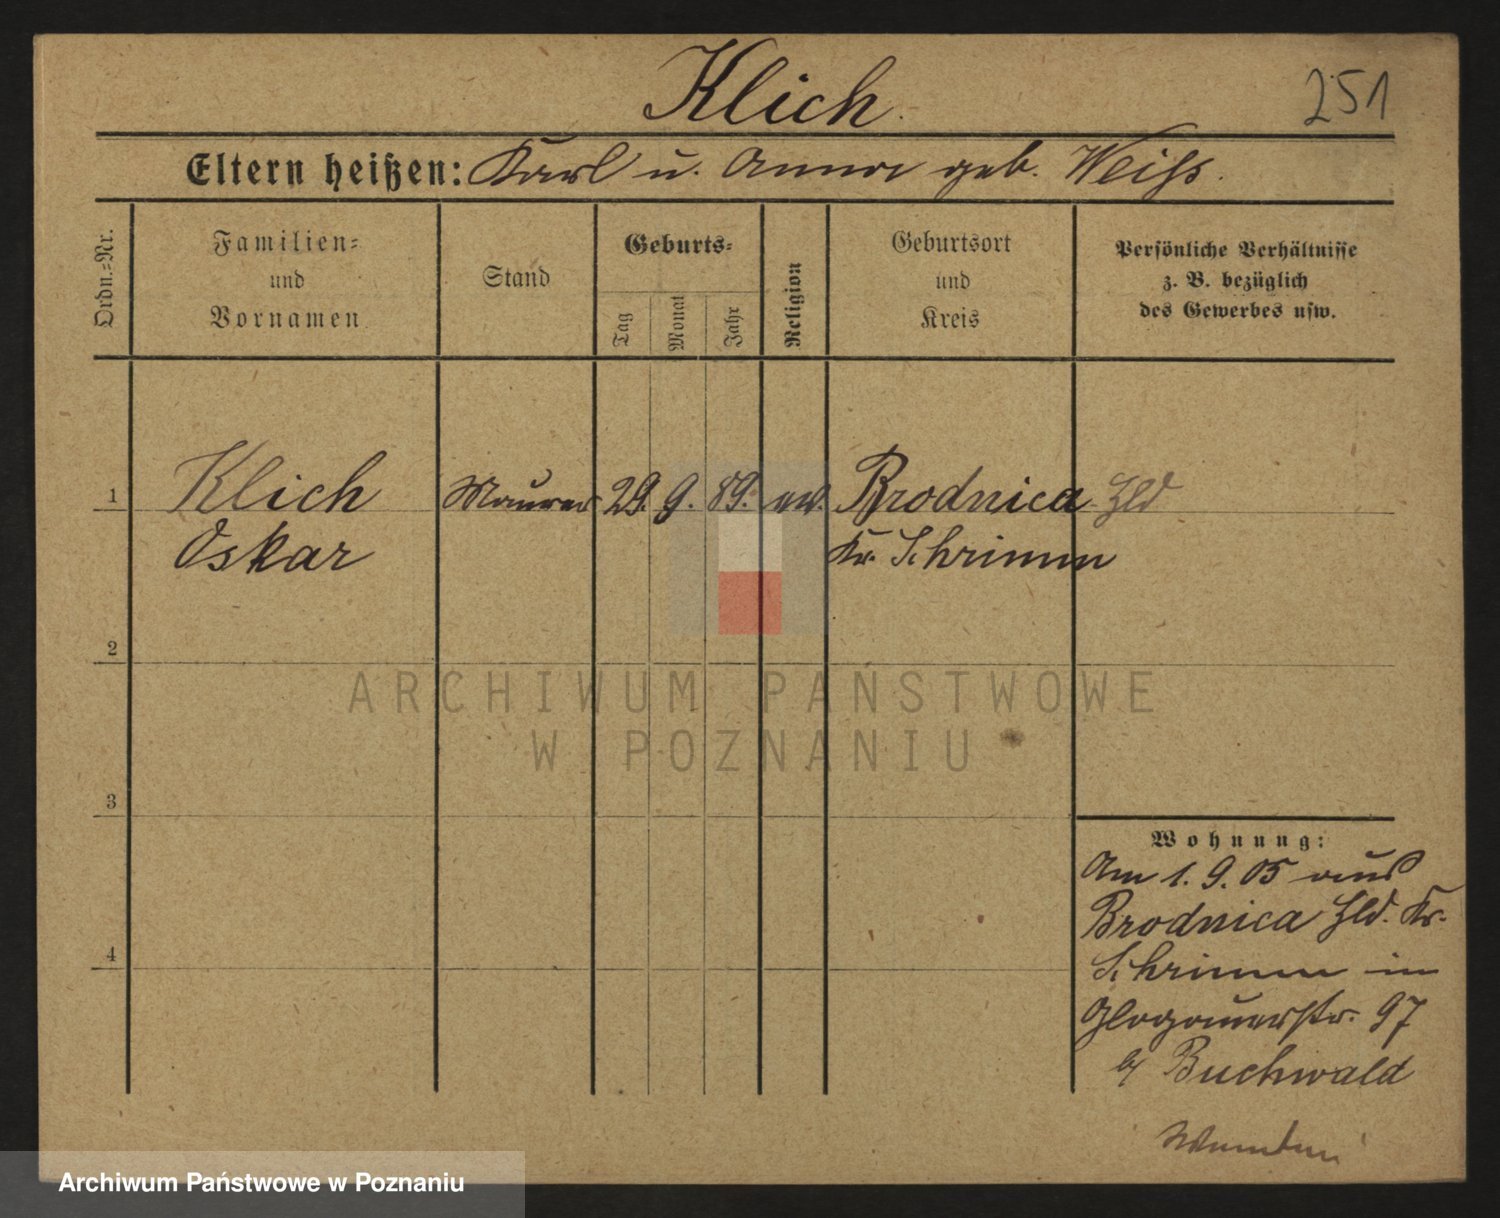 Klich
251
Eltern heißen: Karl u. Anna geb. Weiss.
Ordn.=Nr.
Familien=
und
Vornamen
Stand
Geburts=
Tag
Monat
Jahr
Religion
Geburtsort
und
Kreis
Persönliche Verhältnisse
z. B. bezüglich
des Gewerbes usw.
1 Klich Maurer 29. 9. 89. ev. Brodnica Hld
Oskar Kr. Schrimm
2
3
4
Wohnung:
Am 1. 9. 05 aus
Brodnica Hld. Kr.
Schrimm in
Glogauerstr. 97
b/ Buchwald
ARCHIWUM PAŃSTWOWE
W POZNANIU
Archiwum Państwowe w Poznaniu